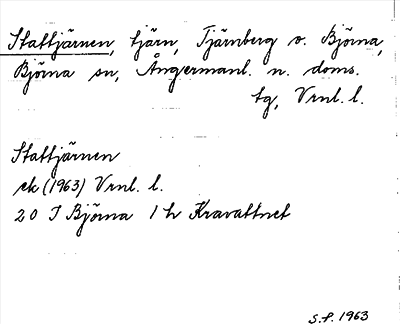 Stattjärnen, tjärn, Tjärnberg o. Björna,
Björna sn, Ångermanl. n. doms.
tg, Vrnl. l.
Stattjärnen
ek (1963) Vrnl. l.
20 I Björna 1 h Kravattnet
S.P. 1963